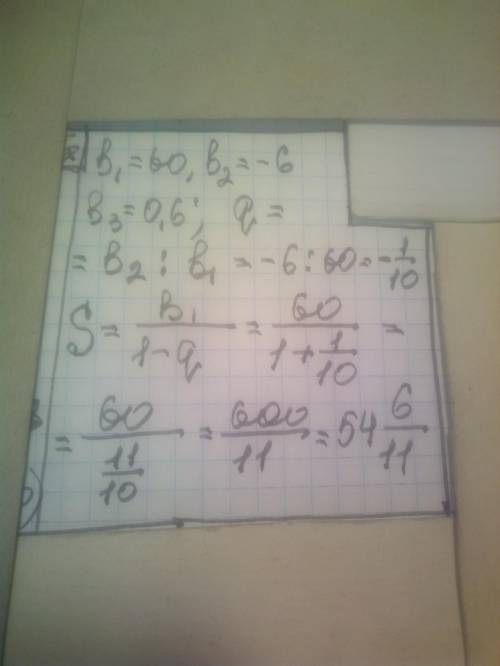 b₁=60, b₂=-6
b₃=0,6; q=
= b₂ : b₁ = -6:60=-1/10
S= b₁/(1-q) = 60/(1+1/10) =
= 60/(11/10) = 600/11 = 54 6/11